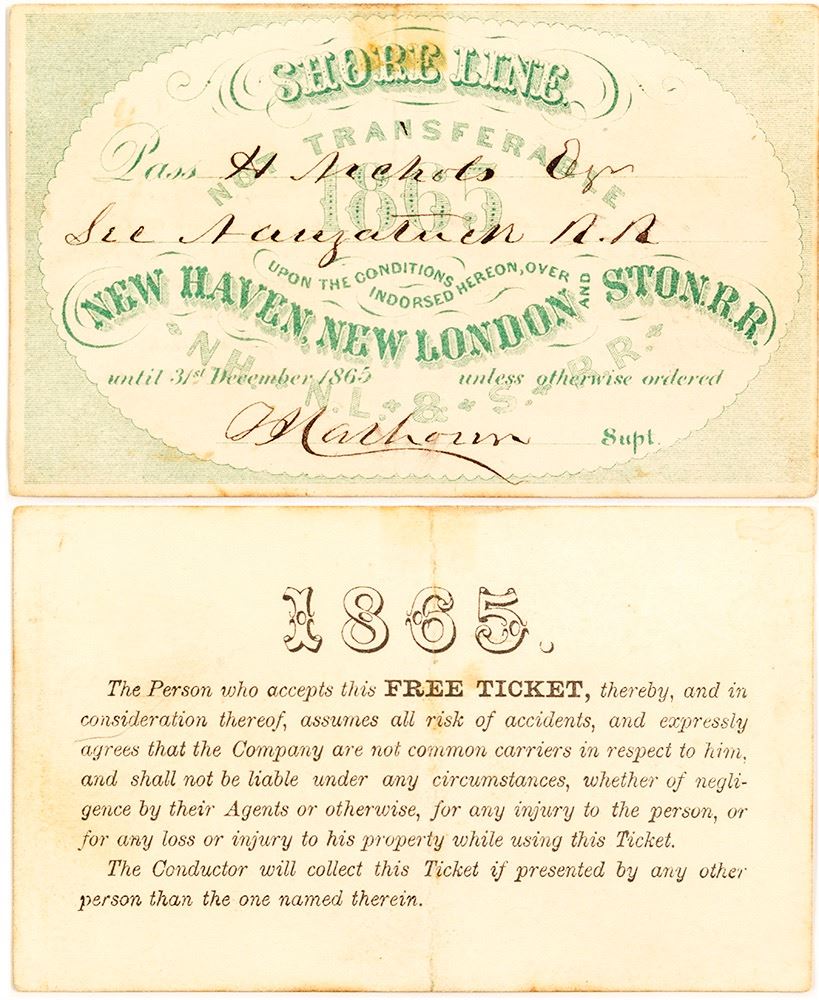 SHORE LINE.
NOT TRANSFERABLE
Pass H Nichols Esqr
1865.
Sec Naugatuck R.R
UPON THE CONDITIONS
INDORSED HEREON, OVER
NEW HAVEN, NEW LONDON AND STON. R.R.
N.H. N.L. & S. R.R.
until 31st December 1865 unless otherwise ordered
Supt.
1865.
The Person who accepts this FREE TICKET, thereby, and in
consideration thereof, assumes all risk of accidents, and expressly
agrees that the Company are not common carriers in respect to him,
and shall not be liable under any circumstances, whether of negli-
gence by their Agents or otherwise, for any injury to the person, or
for any loss or injury to his property while using this Ticket.
The Conductor will collect this Ticket if presented by any other
person than the one named therein.